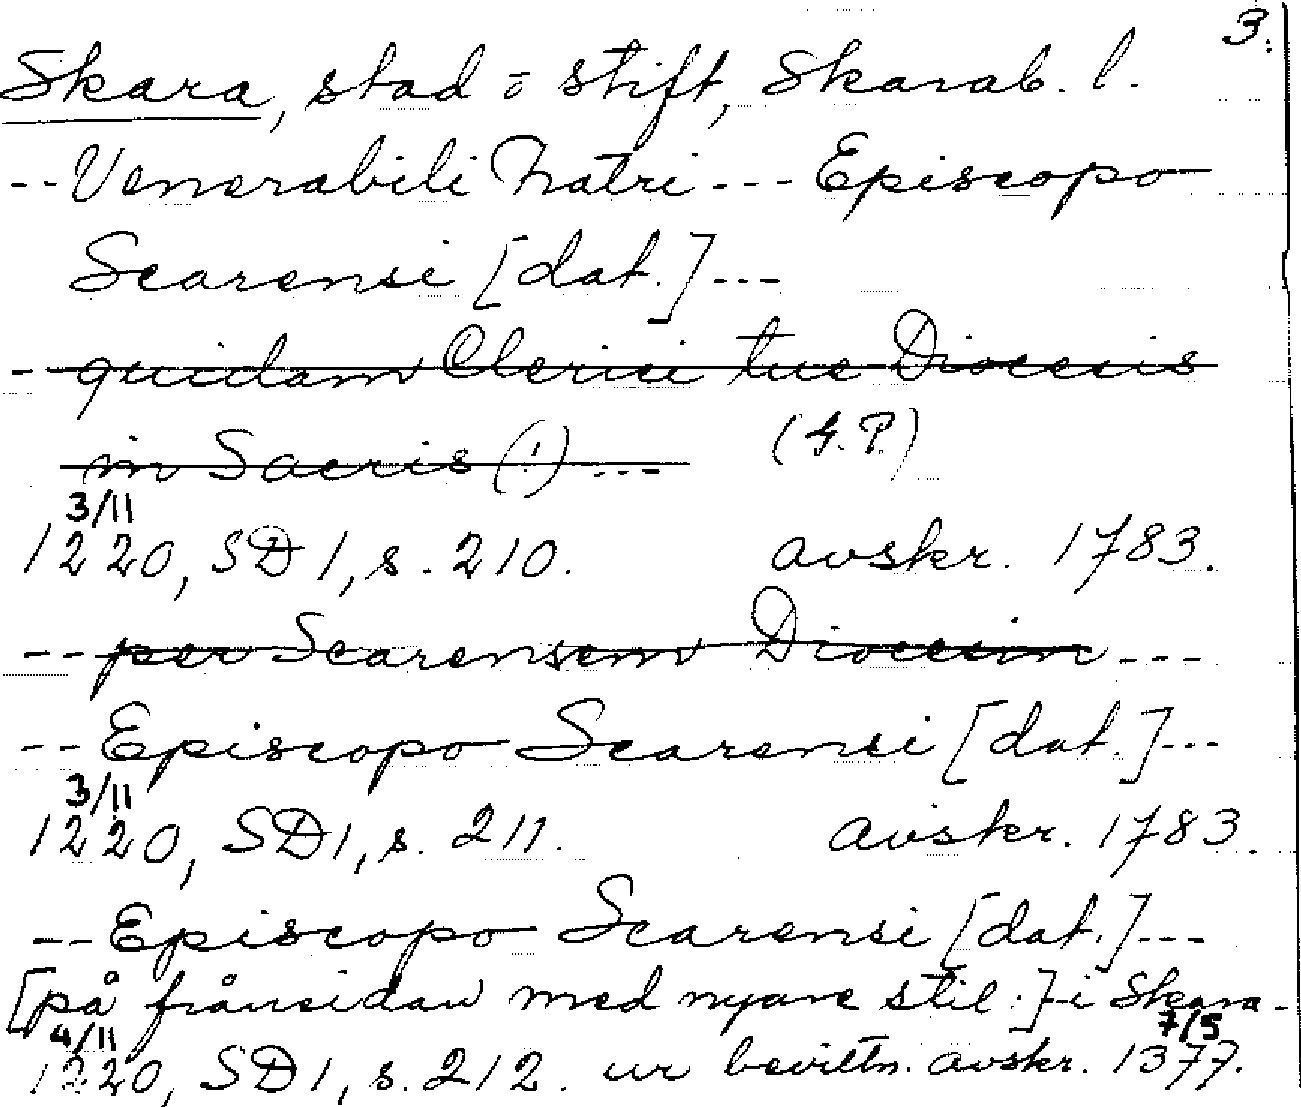 3.
Skara, stad o stift, Skarab. l.
-- Venerabili Fratri --- Episcopo
Scarensi [dat.] ---
- quidam Clerici tue Diocesis
in Sacris (!) ---
(G.P.)
3/11
1220, SD 1, s. 210. avskr. 1783.
-- per Scarensem Diocesim ---
-- Episcopo Scarensi [dat.] ---
3/11
1220, SD 1, s. 211. avskr. 1783.
-- Episcopo Scarensi [dat.] ---
[på frånsidan med nyare stil:] i Skara -
4/11 7/5
1220, SD 1, s. 212. ur bevittn. avskr. 1377.